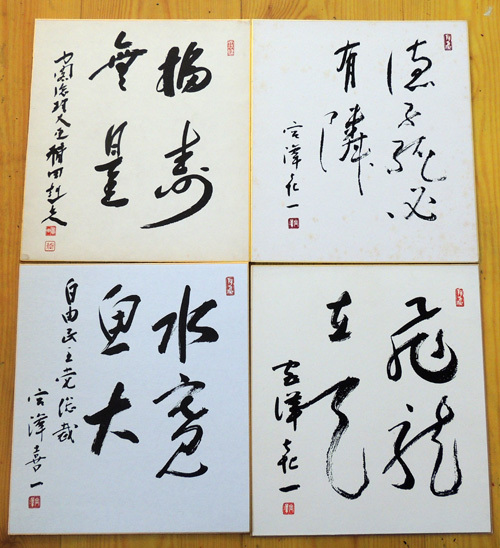 福寿
無量
内閣総理大臣福田赳夫
徳不孤必
有隣
宮澤喜一
水寛
魚大
自由民主党総裁
宮澤喜一
飛龍
在天
宮澤喜一